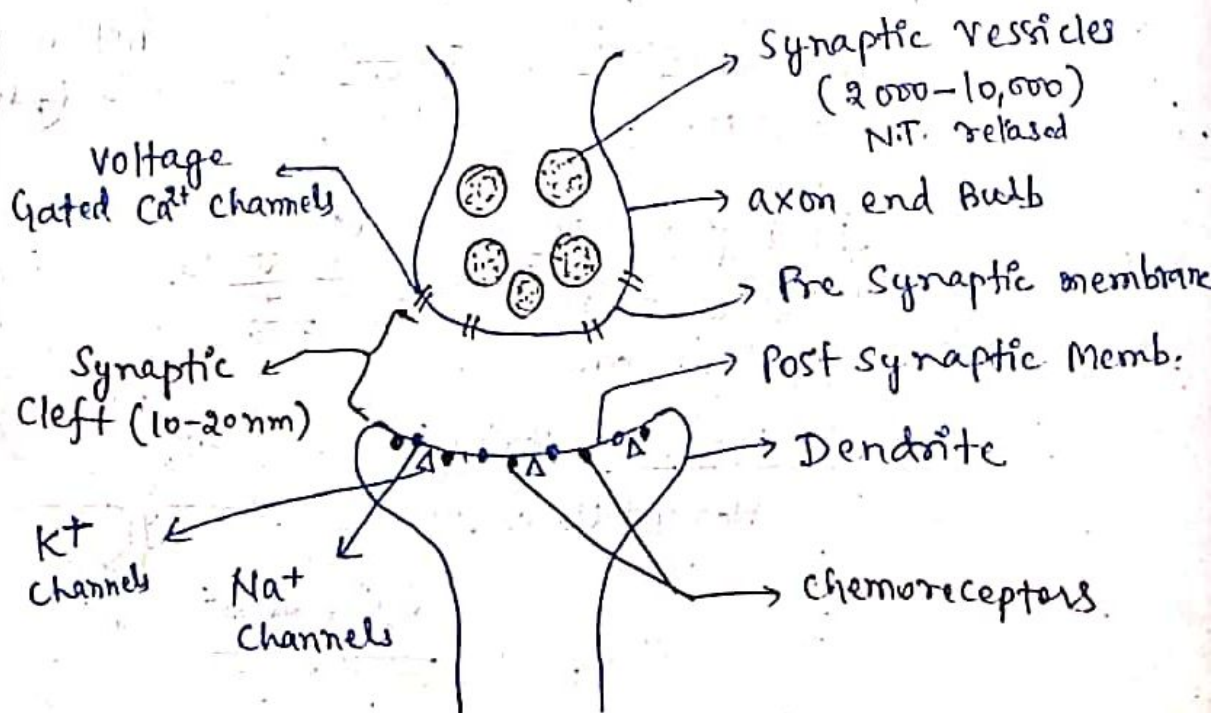 Synaptic Vessicles
(2000-10,000)
N.T. relased
Voltage
Gated Ca²⁺ Channels
axon end Bulb
Pre Synaptic membrane
Synaptic
Cleft (10-20nm)
Post Synaptic Memb.
Dendrite
K+
Channels
Na+
Channels
Chemoreceptors